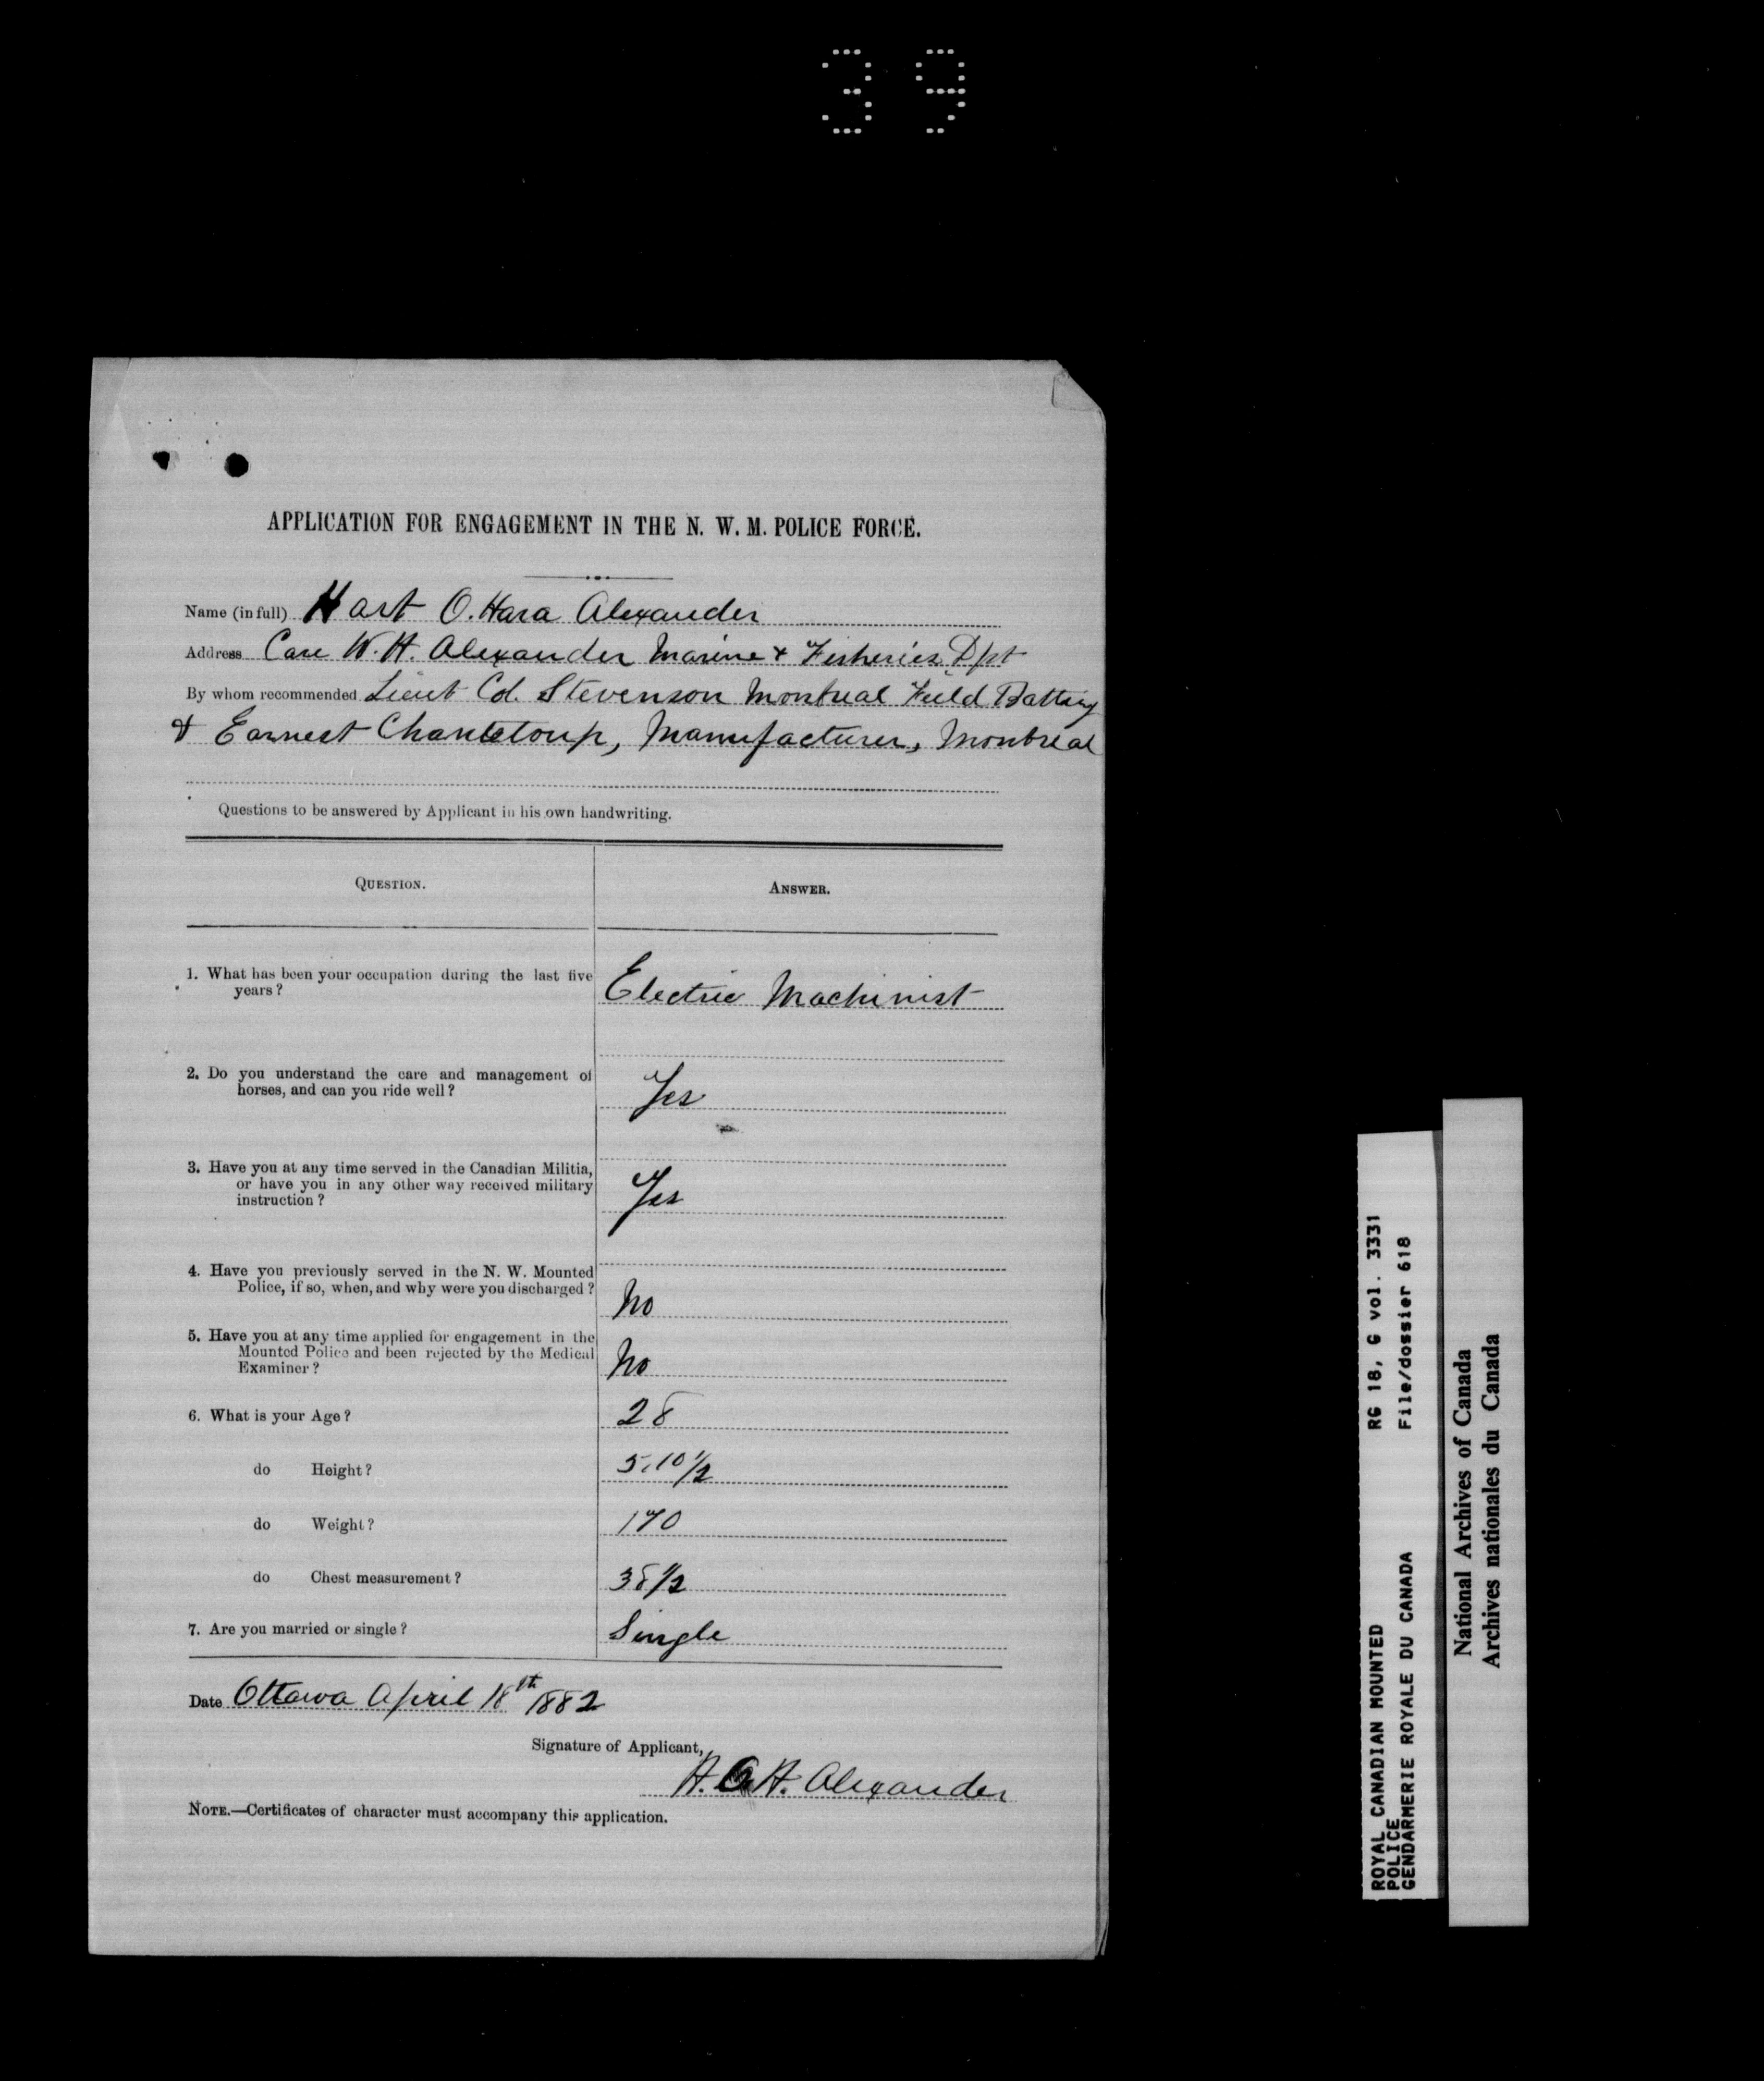 39
APPLICATION FOR ENGAGEMENT IN THE N. W. M. POLICE FORCE.
Name (in full) Hart O. Hara Alexander
Address Care W. H. Alexander Marine & Fisheries Dpt
By whom recommended Lieut Col. Stevenson Montreal Field Battery
& Earnest Chanteloup, Manufacturer, Montreal
Questions to be answered by Applicant in his own handwriting.
QUESTION. ANSWER.
1. What has been your occupation during the last five
years? Electric Machinist
2. Do you understand the care and management of
horses, and can you ride well? Yes
3. Have you at any time served in the Canadian Militia,
or have you in any other way received military
instruction? Yes
4. Have you previously served in the N. W. Mounted
Police, if so, when, and why were you discharged? No
5. Have you at any time applied for engagement in the
Mounted Police and been rejected by the Medical
Examiner? No
6. What is your Age? 28
do Height? 5.10 1/2
do Weight? 170
do Chest measurement? 38 1/2
7. Are you married or single? Single
Date Ottawa April 18th 1882
Signature of Applicant,
H. O. H. Alexander
NOTE.—Certificates of character must accompany this application.
ROYAL CANADIAN MOUNTED RG 18, G vol. 3331
POLICE
GENDARMERIE ROYALE DU CANADA File/dossier 618
National Archives of Canada
Archives nationales du Canada